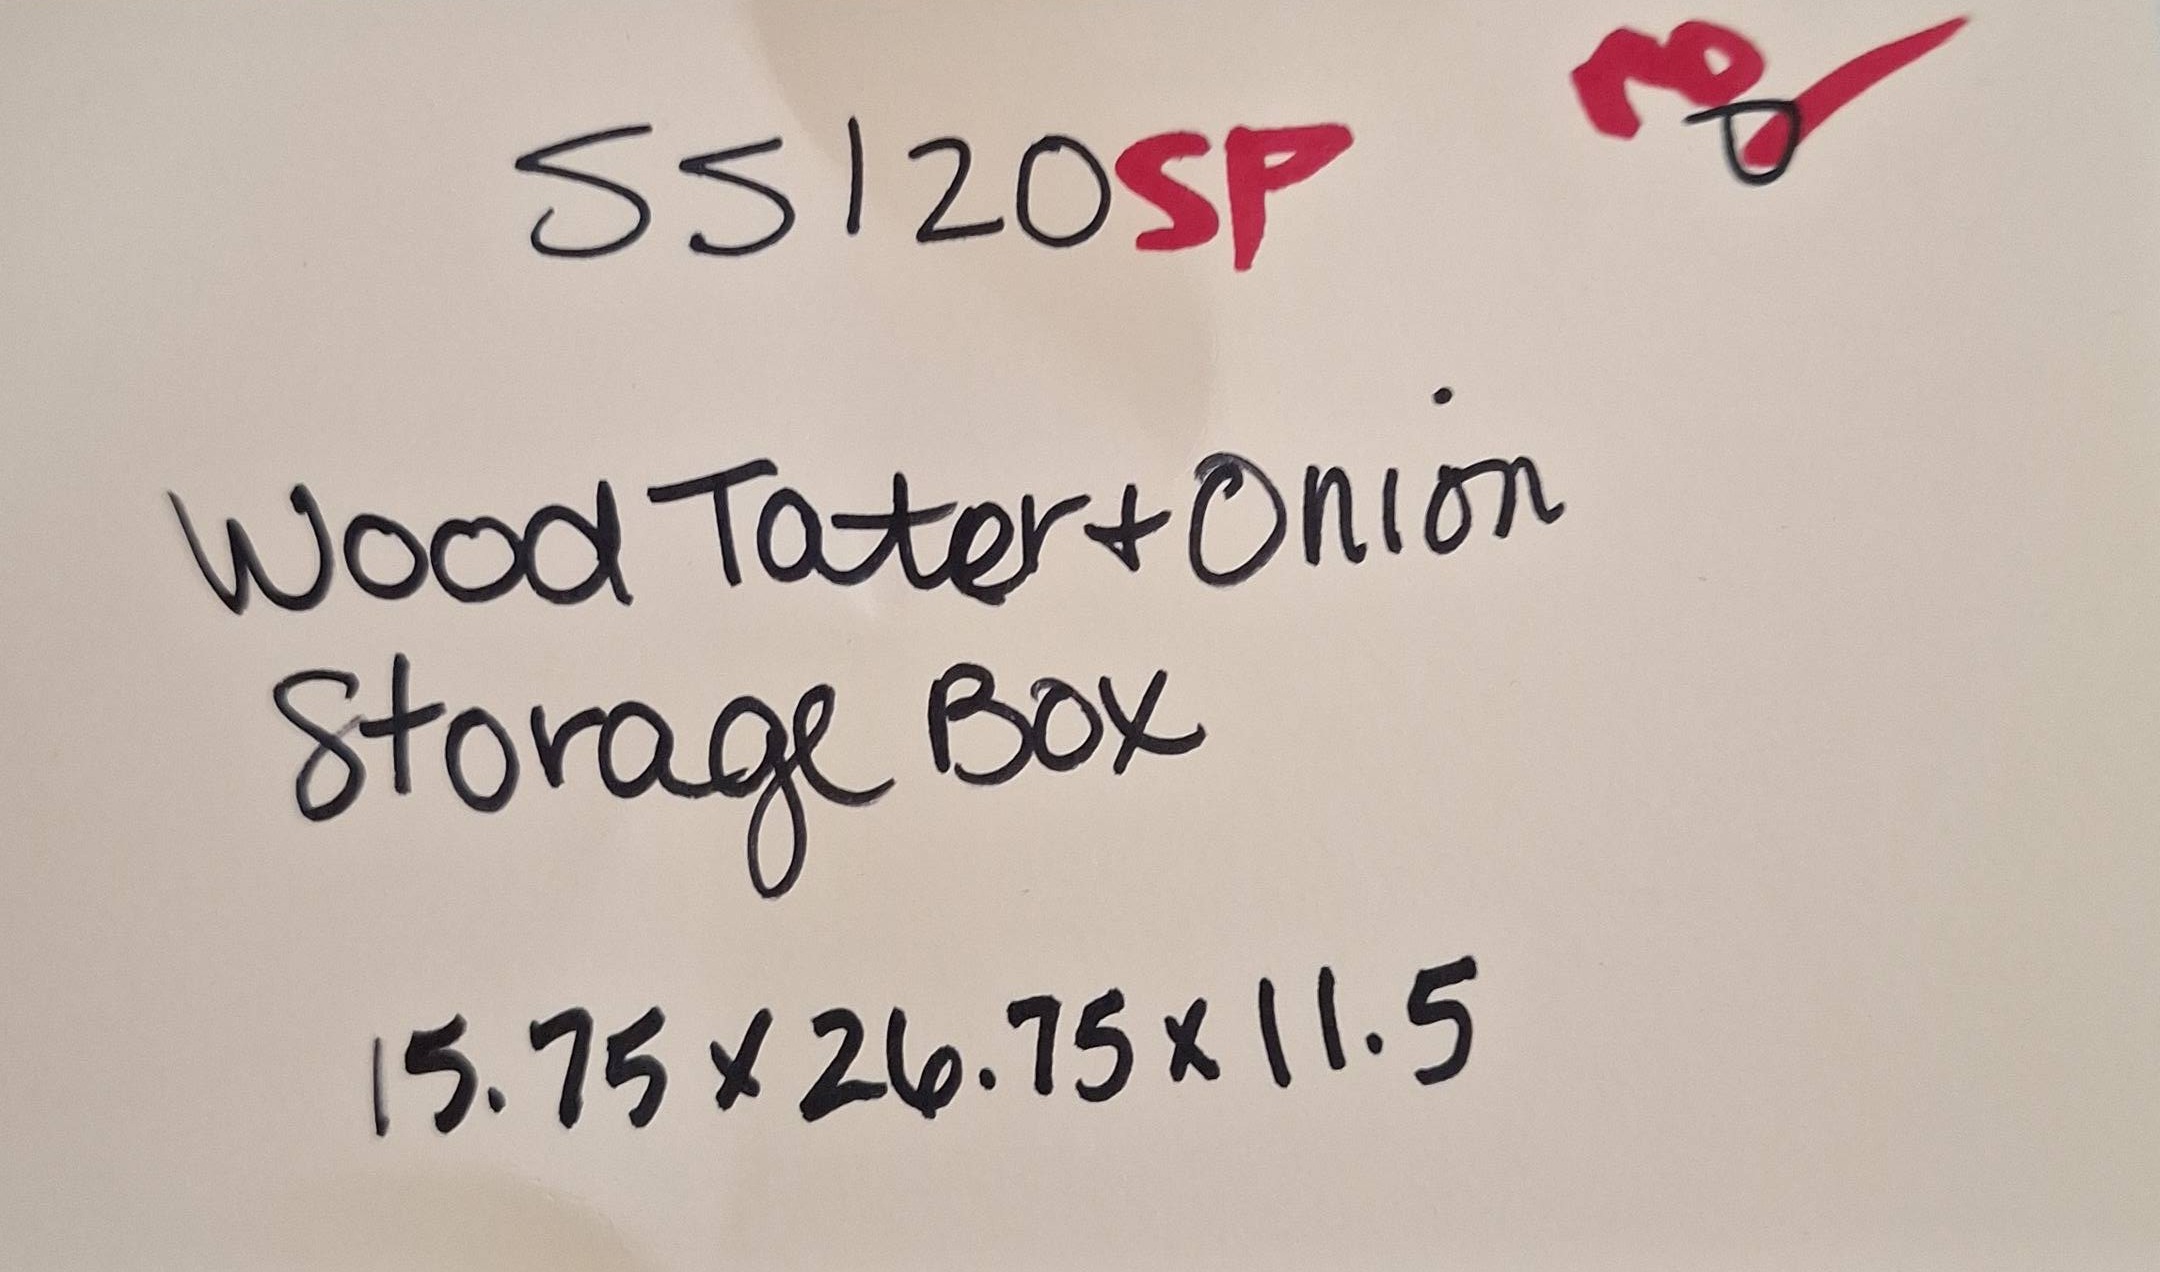 SS120SP
Wood Tater + Onion
Storage Box
15.75 x 26.75 x 11.5